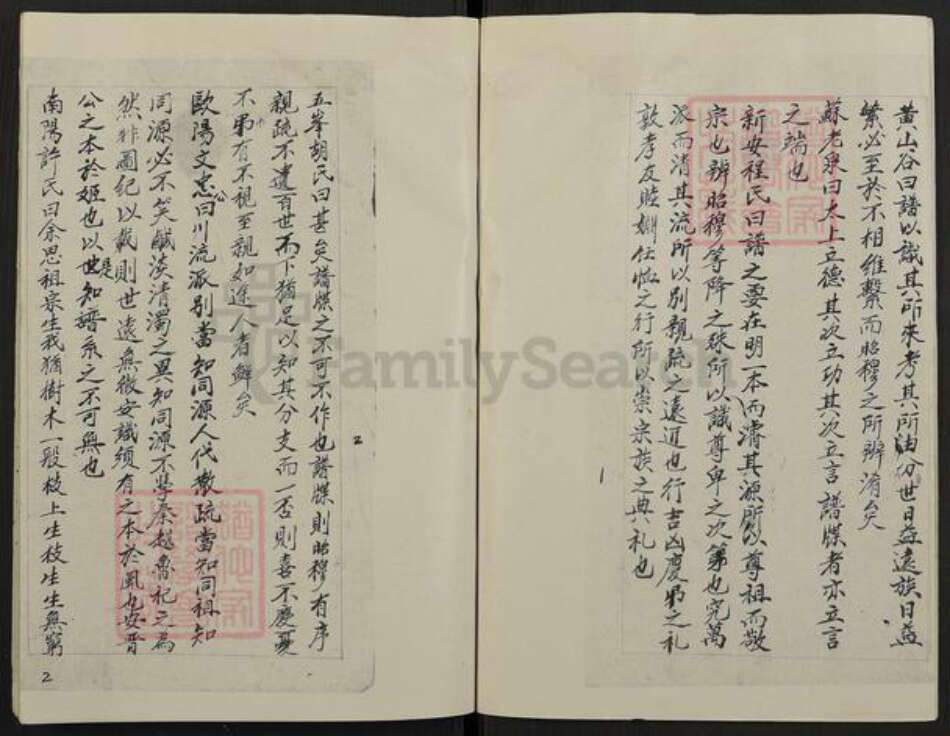 黃山谷曰譜以識其所來考其所由分世日益遠族日益
繁必至於不相維繫而昭穆之所辨淆矣
蘇老泉曰太上立德其次立功其次立言譜牒者亦立言
之端也
新安程氏曰譜之要在明一本而濬其源所以尊祖而敬
宗也辨昭穆等降之殊所以識尊卑之次第也究萬
派而清其流所以別親疏之遠迩也行吉凶慶弔之礼
敦孝友睦婣任恤之行所以崇宗族之典礼也
1
五峯胡氏曰甚矣譜牒之不可不作也譜牒則昭穆有序
親疏不遺百世而下猶足以知其分支而一否則喜不慶憂
不弔有不視至親如途人者鮮矣
歐陽文忠公曰川流派別當知同源人代散疏當知同祖知
同源必不笑鹹淡清濁之異知同源不學秦越魯祀之為
然非圖紀以載則世遠無徵安識須有之本於鳳也安晋
公之本於姬也以是世知譜系之不可無也
南陽許氏曰余思祖宗生我猶樹木一般枝上生枝生生無窮
2
2
FamilySearch